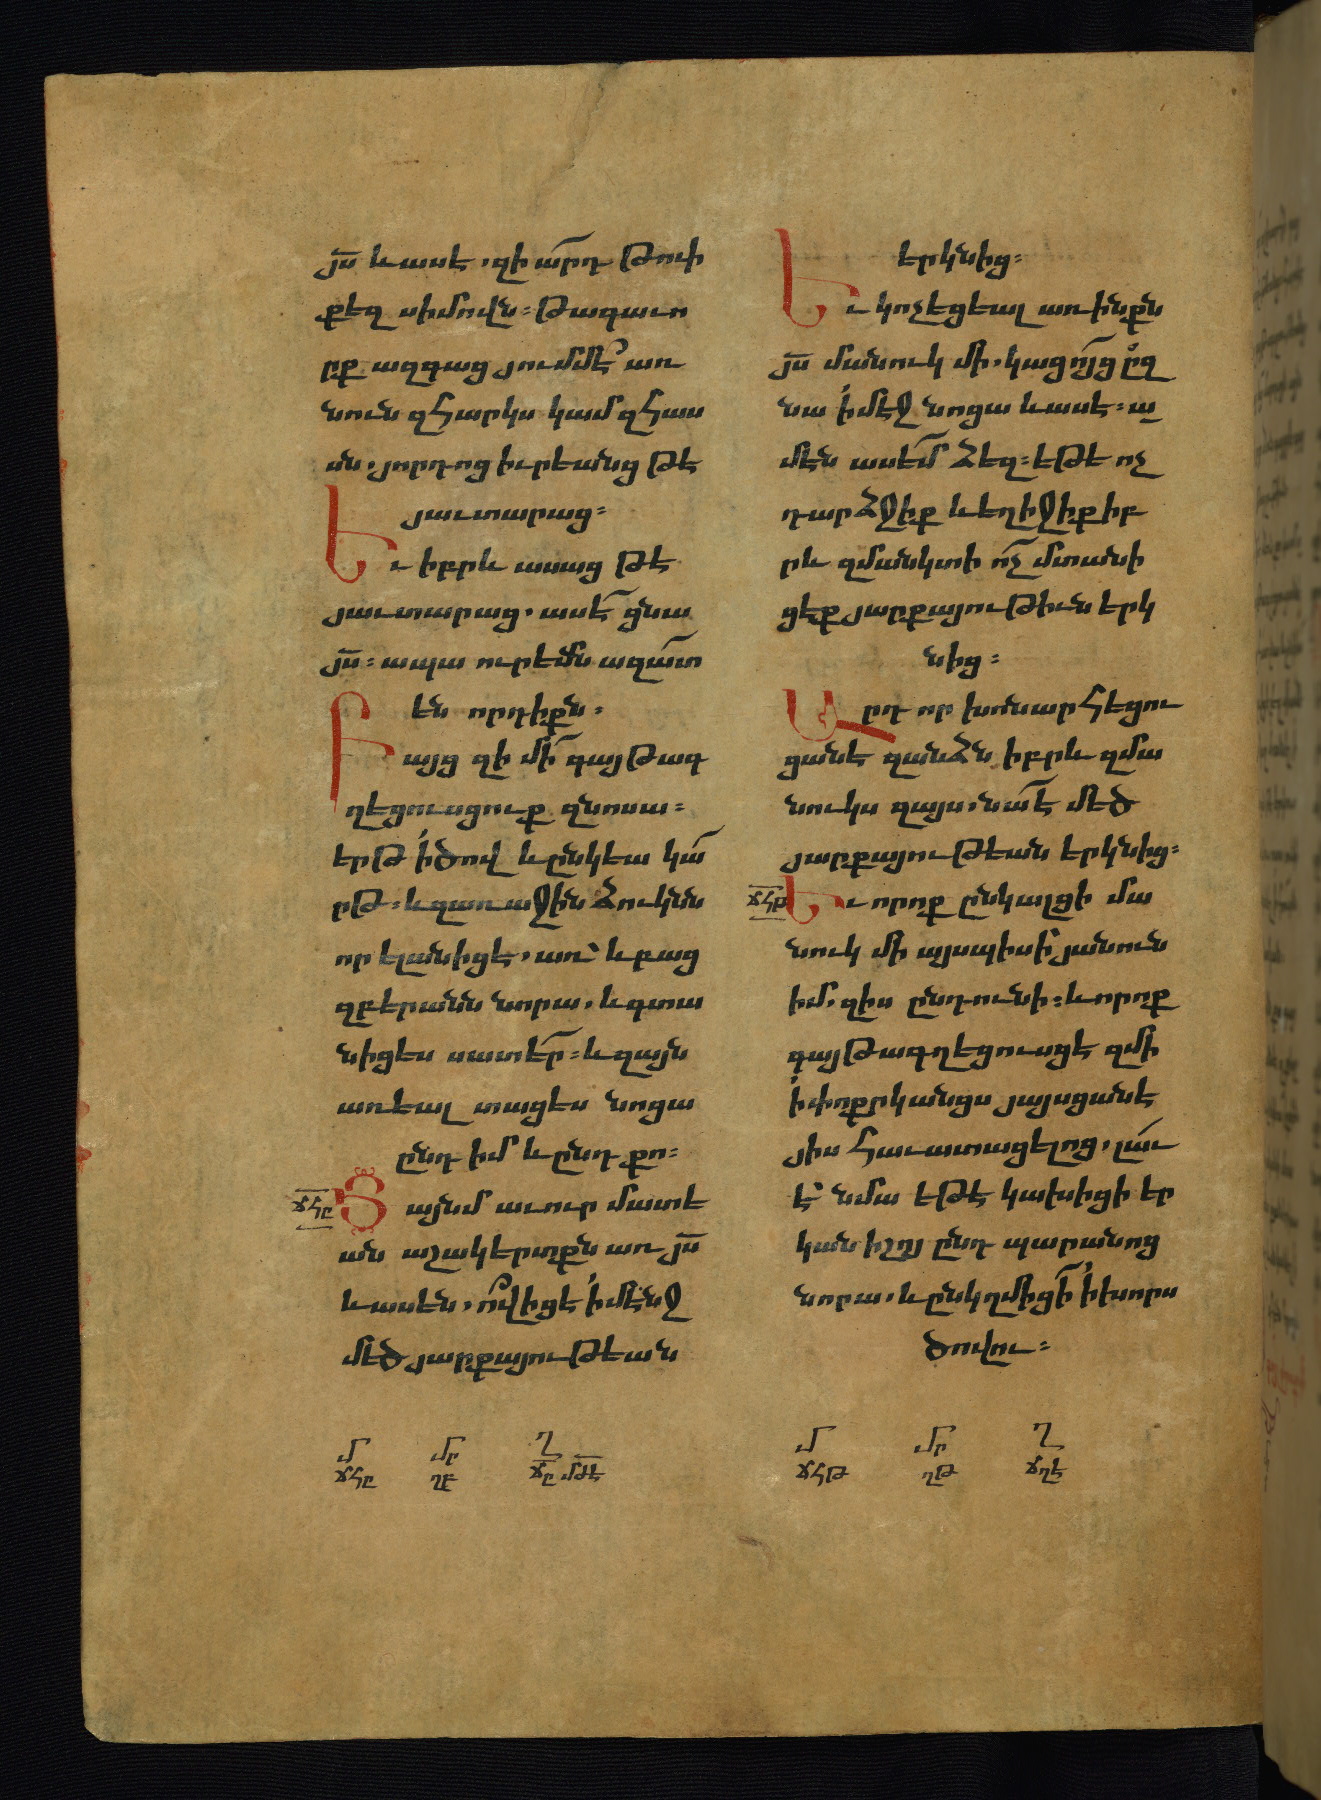 յս և ասէ, զի ա՞րդ թուի
քեզ սիմովն։ Թագաւո
րք ազգաց յումմէ՞ առ
նուն զհարկս կամ զհաս
ան, յորդոց իւրեանց թէ
յաւտարաց։
Եւ իբրև ասաց թէ
յաւտարաց, ասէ ցնա
յս։ ապա ուրեմն ազատ
են որդիքն։
Բայց զի մի գայթագ
ղեցուսցուք զնոսա։
երթ ի ծով և ընկեա կա
րթ։ և զառաջին ձուկնն
որ ելանիցէ, առ և բաց
զբերանն նորա, և գտա
նիցես սատեր։ և զայն
առեալ տացես նոցա
ընդ իմ և ընդ քո։
ՃՀԸ Յայնմ աւուր մատե
ան աշակերտքն առ յս
և ասեն, ո՞վ իցէ ի մէնջ
մեծ յարքայութեան
երկնից։
Եւ կոչեցեալ առ ինքն
յս մանուկ մի, կացոյց զ
նա ի մէջ նոցա և ասէ։ ա
մէն ասեմ ձեզ։ եթե ոչ
դարձջիք և եղիջիք իբ
րև զմանկտի ոչ մտանի
ցէք յարքայութիւն երկ
նից։
Արդ որ խոնարհեցու
ցանէ զանձն իբրև զմա
նուկս զայս, նա է մեծ
յարքայութեան երկնից։
ՃՀԹ Եւ որոք ընկալցի մա
նուկ մի այսպիսի յանուն
իմ, զիս ընդունի։ և որոք
գայթագղեցուսցէ զմի
ի փոքրկանցս յայսցանէ
յիս հաւատացելոց, լաւ
է նմա եթէ կախիցի եր
կան իշոյ ընդ պարանոց
նորա, և ընկղմիցի ի խորս
ծովու։
Մ Մր Ղ
ՃՀԸ ՂԲ ՃԸ ՄԺԷ
Մ Մր Ղ
ՃՀԹ ՂԹ ՃՂԷ